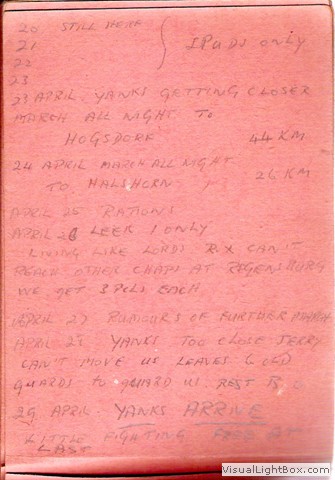 20 STILL HERE
21 SPUDS ONLY
22
23
23 APRIL YANKS GETTING CLOSER
MARCH ALL NIGHT TO
HOGSDORF 44 KM
24 APRIL MARCH ALL NIGHT
TO HALSHORN 26 KM
APRIL 25 RATIONS
APRIL 26 LEEK 1 ONLY
LIVING LIKE LORDS R.X CAN'T
REACH OTHER CHAPS AT REGENSBURG
WE GET 3 PCLS EACH
APRIL 27 RUMOURS OF FURTHER MARCH
APRIL 28 YANKS TOO CLOSE JERRY
CAN'T MOVE US LEAVES 6 OLD
GUARDS TO GUARD US REST
29 APRIL YANKS ARRIVE
LITTLE FIGHTING FREE AT
LAST
VisualLightBox.com